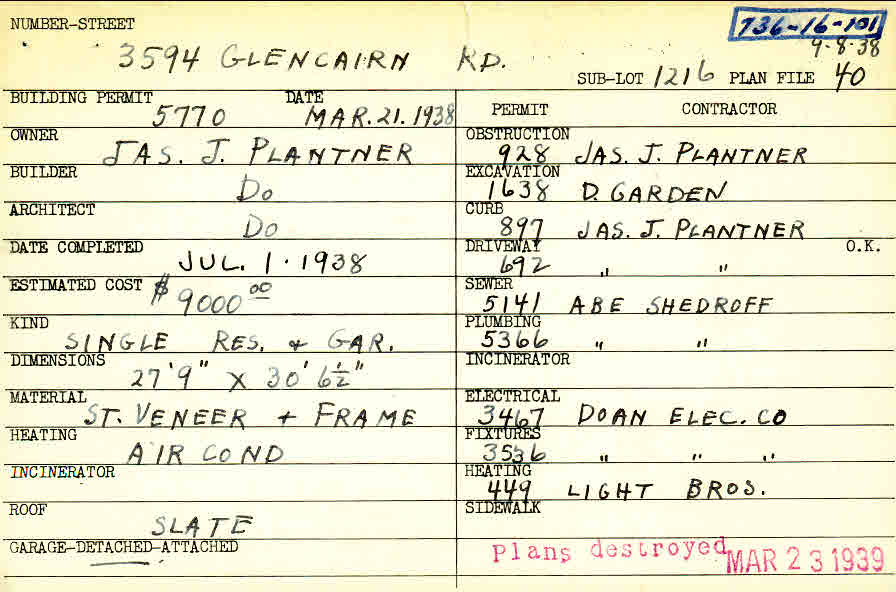 NUMBER-STREET
736-16-101
3594 GLENCAIRN RD.
9-8-38
SUB-LOT 1216 PLAN FILE 40
BUILDING PERMIT DATE
5770 MAR. 21. 1938
OWNER
JAS. J. PLANTNER
BUILDER
Do
ARCHITECT
Do
DATE COMPLETED
JUL. 1. 1938
ESTIMATED COST $ 9000 00
KIND
SINGLE RES. & GAR.
DIMENSIONS
27'9" X 30'6½"
MATERIAL
ST. VENEER + FRAME
HEATING
AIR COND
INCINERATOR
ROOF
SLATE
GARAGE-DETACHED-ATTACHED
PERMIT CONTRACTOR
OBSTRUCTION
928 JAS. J. PLANTNER
EXCAVATION
1638 D. GARDEN
CURB
897 JAS. J. PLANTNER
DRIVEWAY O.K.
692 " "
SEWER
5141 ABE SHEDROFF
PLUMBING
5366 " "
INCINERATOR
ELECTRICAL
3467 DOAN ELEC. CO
FIXTURES
3536 " " "
HEATING
449 LIGHT BROS.
SIDEWALK
Plans destroyed MAR 23 1939